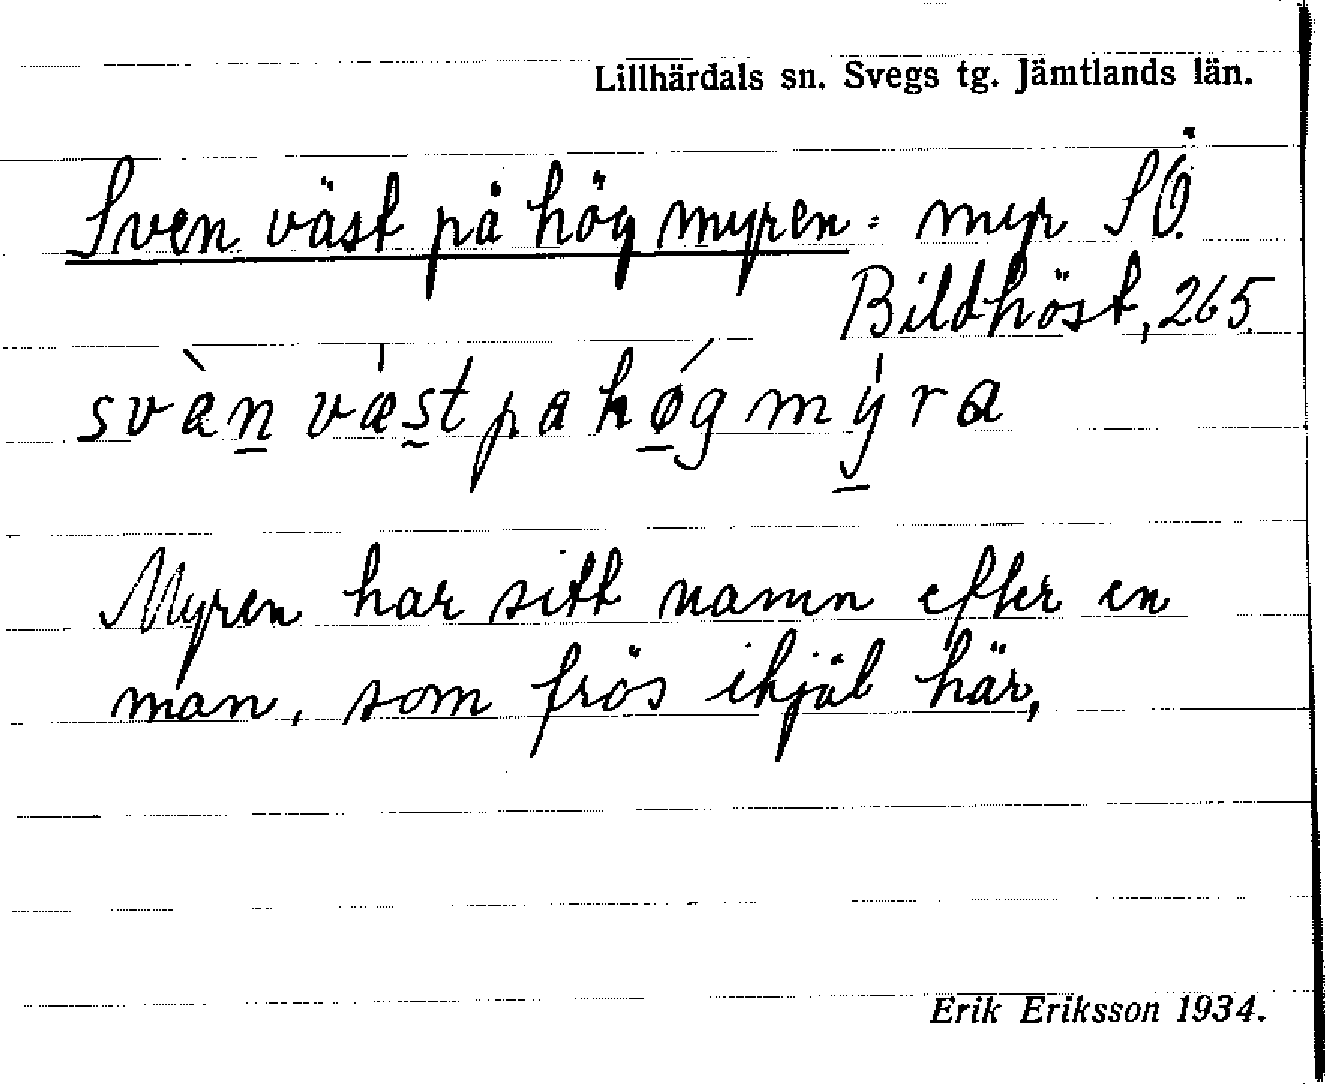 Lillhärdals sn. Svegs tg. Jämtlands län.
Sven väst på högmyren: myr SÖ.
Bildhöst, 265.
svàn væ̍st pa hǿgmy̍ra
Myren har sitt namn efter en
man, som frös ihjäl här,
Erik Eriksson 1934.